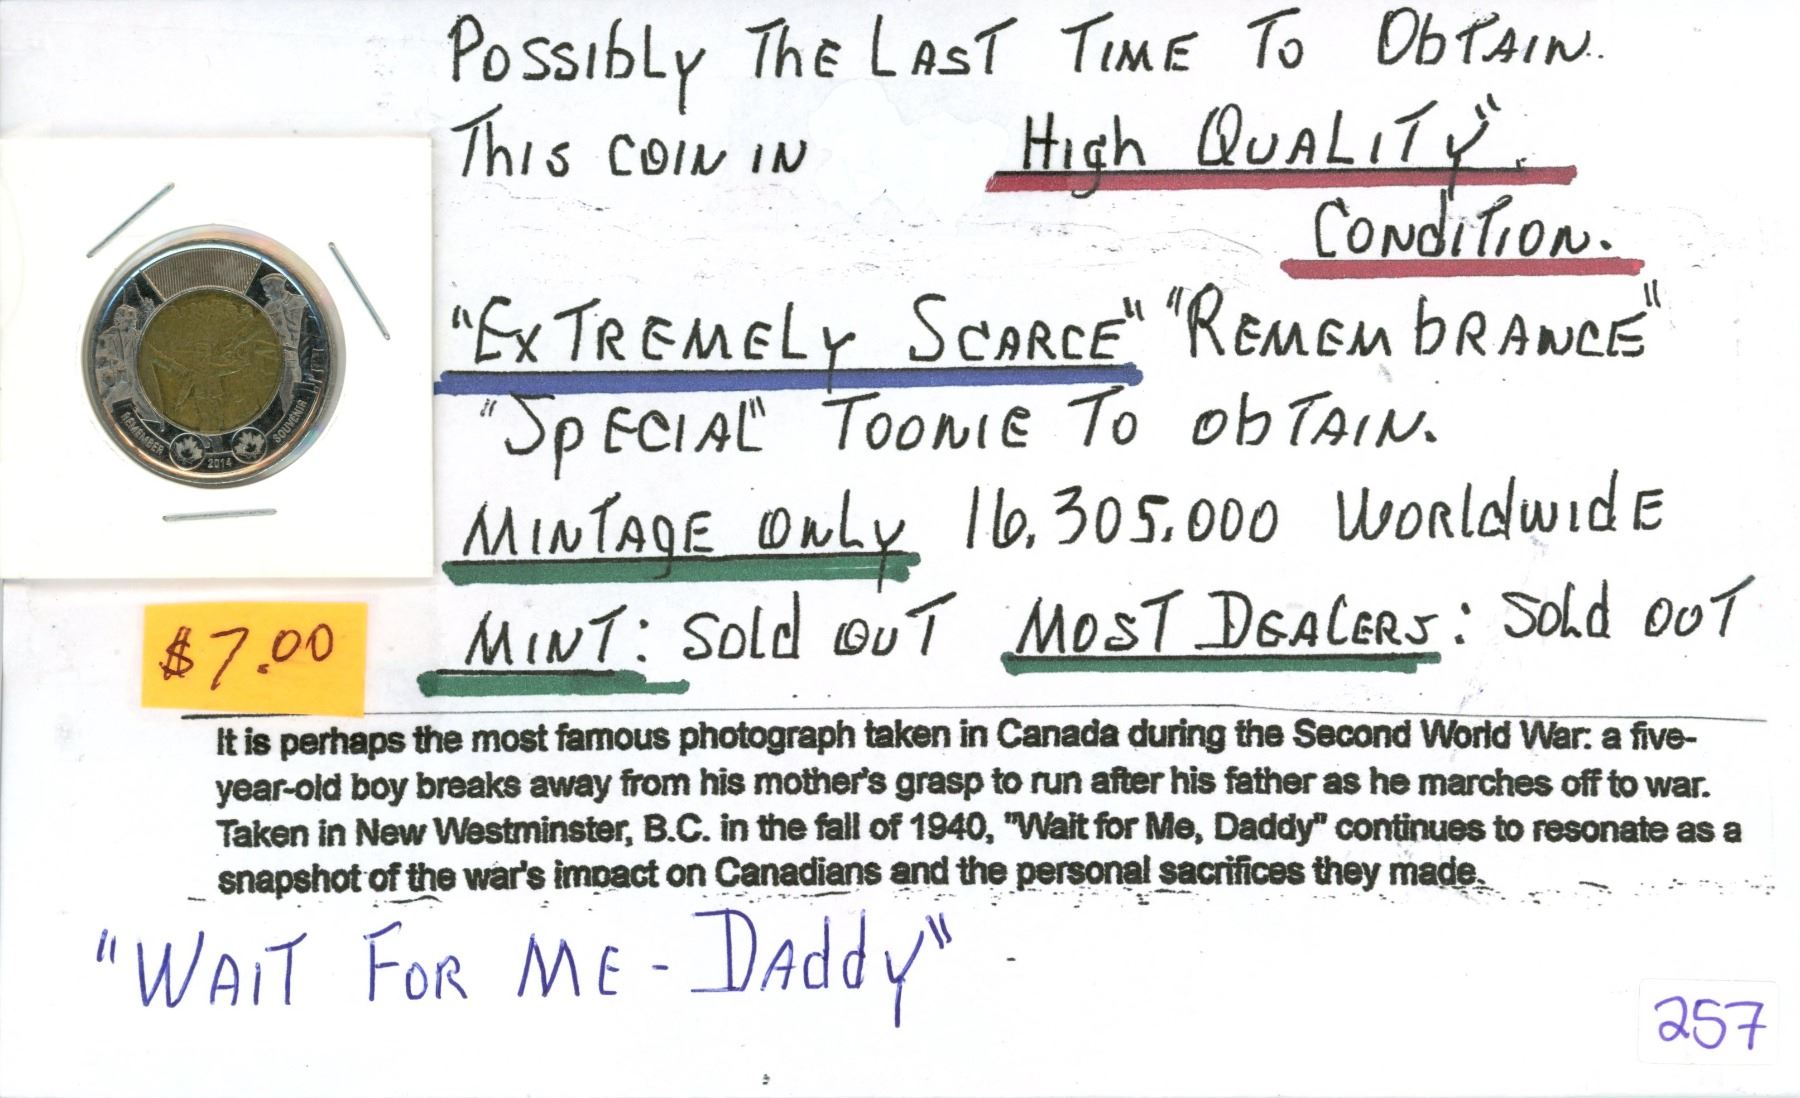 Possibly The Last Time To Obtain.
This Coin in High Quality".
Condition.
"Extremely Scarce" "Remembrance"
"Special" Toonie To obtain.
Mintage only 16,305,000 Worldwide
Mint: Sold out Most Dealers: Sold out
REMEMBER 2014 SOUVENIR
$7.00
It is perhaps the most famous photograph taken in Canada during the Second World War: a five-
year-old boy breaks away from his mother's grasp to run after his father as he marches off to war.
Taken in New Westminster, B.C. in the fall of 1940, "Wait for Me, Daddy" continues to resonate as a
snapshot of the war's impact on Canadians and the personal sacrifices they made.
"Wait For Me - Daddy"
257